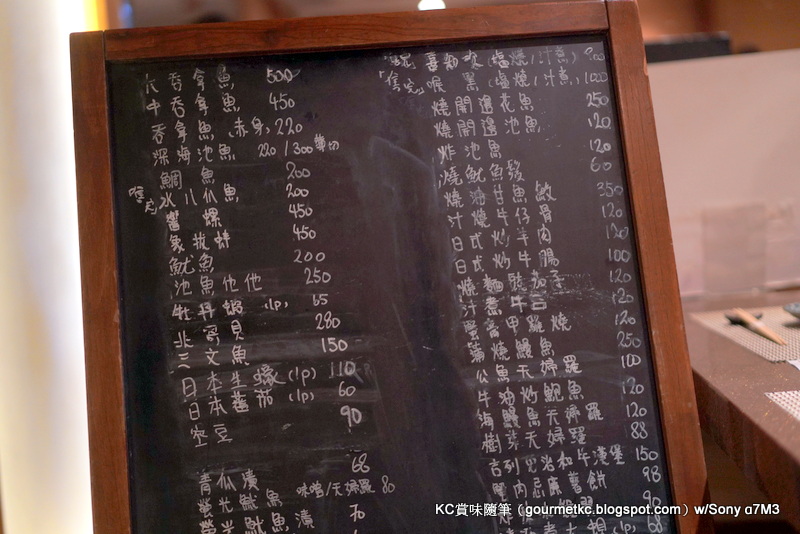 大吞拿魚 500
中吞拿魚 450
吞拿魚 赤身 220
深海池魚 220 / 300
鯛魚 200
水八爪魚 200
響螺 450
象拔蚌 450
魷魚 200
池魚他他 250
牡丹蝦 (1p) 65
北寄貝 280
三文魚 150
日本生蠔 (1p) 110
日本蕃茄 (1p) 60
空豆 90
青瓜漬 68
螢光魷魚 味噌/天婦羅 80
螢光魷魚漬 70
喜知次 (塩燒/汁煮)
喉黑 (塩燒/汁煮) 1000
燒開邊花魚 250
燒開邊池魚 120
炸池魚 120
燒魷魚鬚 60
燒油甘魚鮫 350
汁燒牛仔骨 120
日式炒羊肉 120
日式炒牛腸 100
燒茄子 120
汁煮牛舌 120
甲羅燒 120
蒲燒鰻魚 250
公魚天婦羅 100
牛油炒鮑魚 120
海鰻魚天婦羅 120
天婦羅 88
吉列芝心和牛漢堡 150
98
90
(1p) 68
KC賞味隨筆（gourmetkc.blogspot.com）w/Sony α7M3